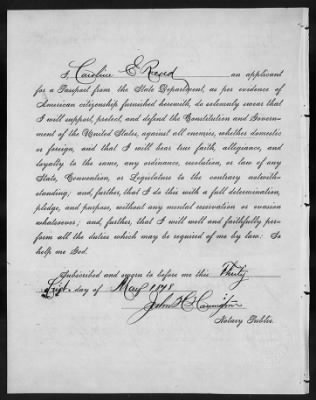 I, Caroline E Reed an applicant
for a Passport from the State Department, as per evidence of
American citizenship furnished herewith, do solemnly swear that
I will support, protect, and defend the Constitution and Govern-
ment of the United States, against all enemies, whether domestic
or foreign, and that I will bear true faith, allegiance, and
loyalty to the same, any ordinance, resolution, or law of any
State, Convention, or Legislature to the contrary notwith-
standing; and, further, that I do this with a full determination,
pledge, and purpose, without any mental reservation or evasion
whatsoever; and, further, that I will well and faithfully per-
form all the duties which may be required of me by law: So
help me God.
Subscribed and sworn to before me this Thirty
first day of May 1878
John H Harrington
Notary Public.